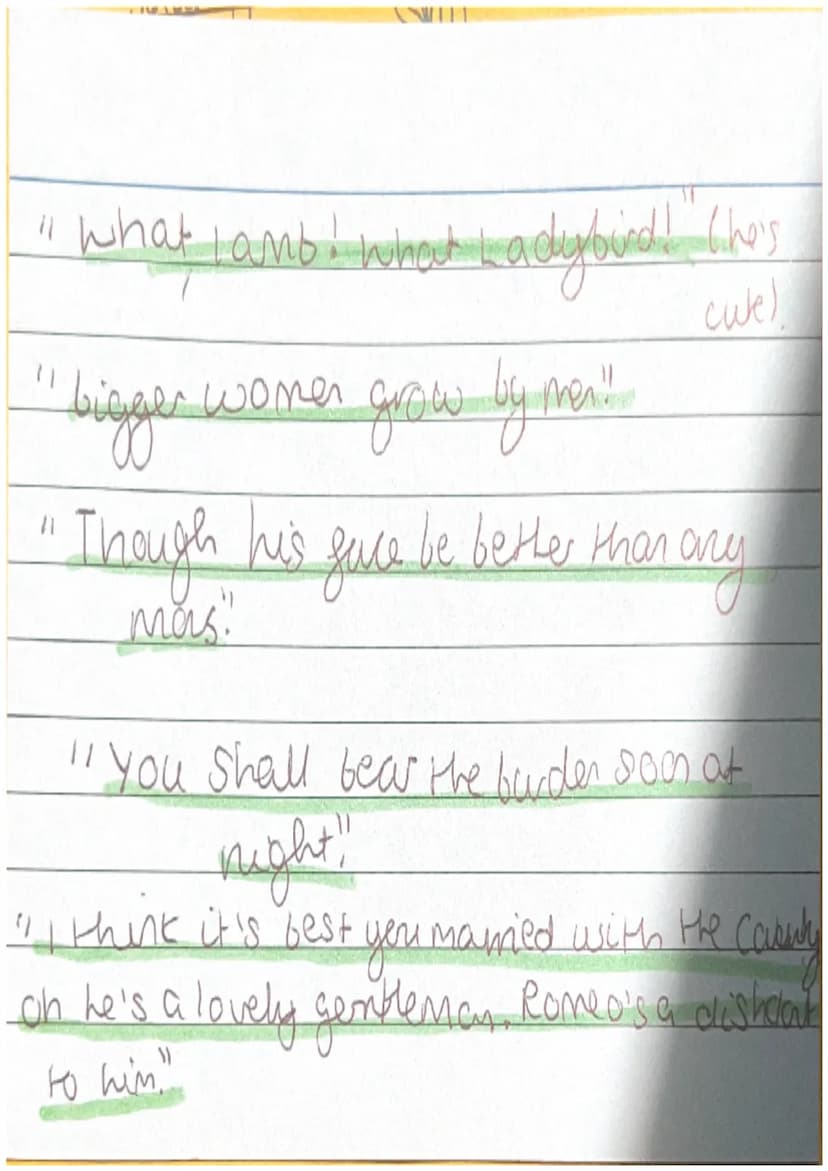 "What, lamb! what Ladybird!" (he's
cute).
"bigger women grow by men"
"Though his face be better than any
mans."
"You shall bear the burden soon at
night."
"I think it's best you married with the County
oh he's a lovely gentleman. Romeo's a dishclout
to him."